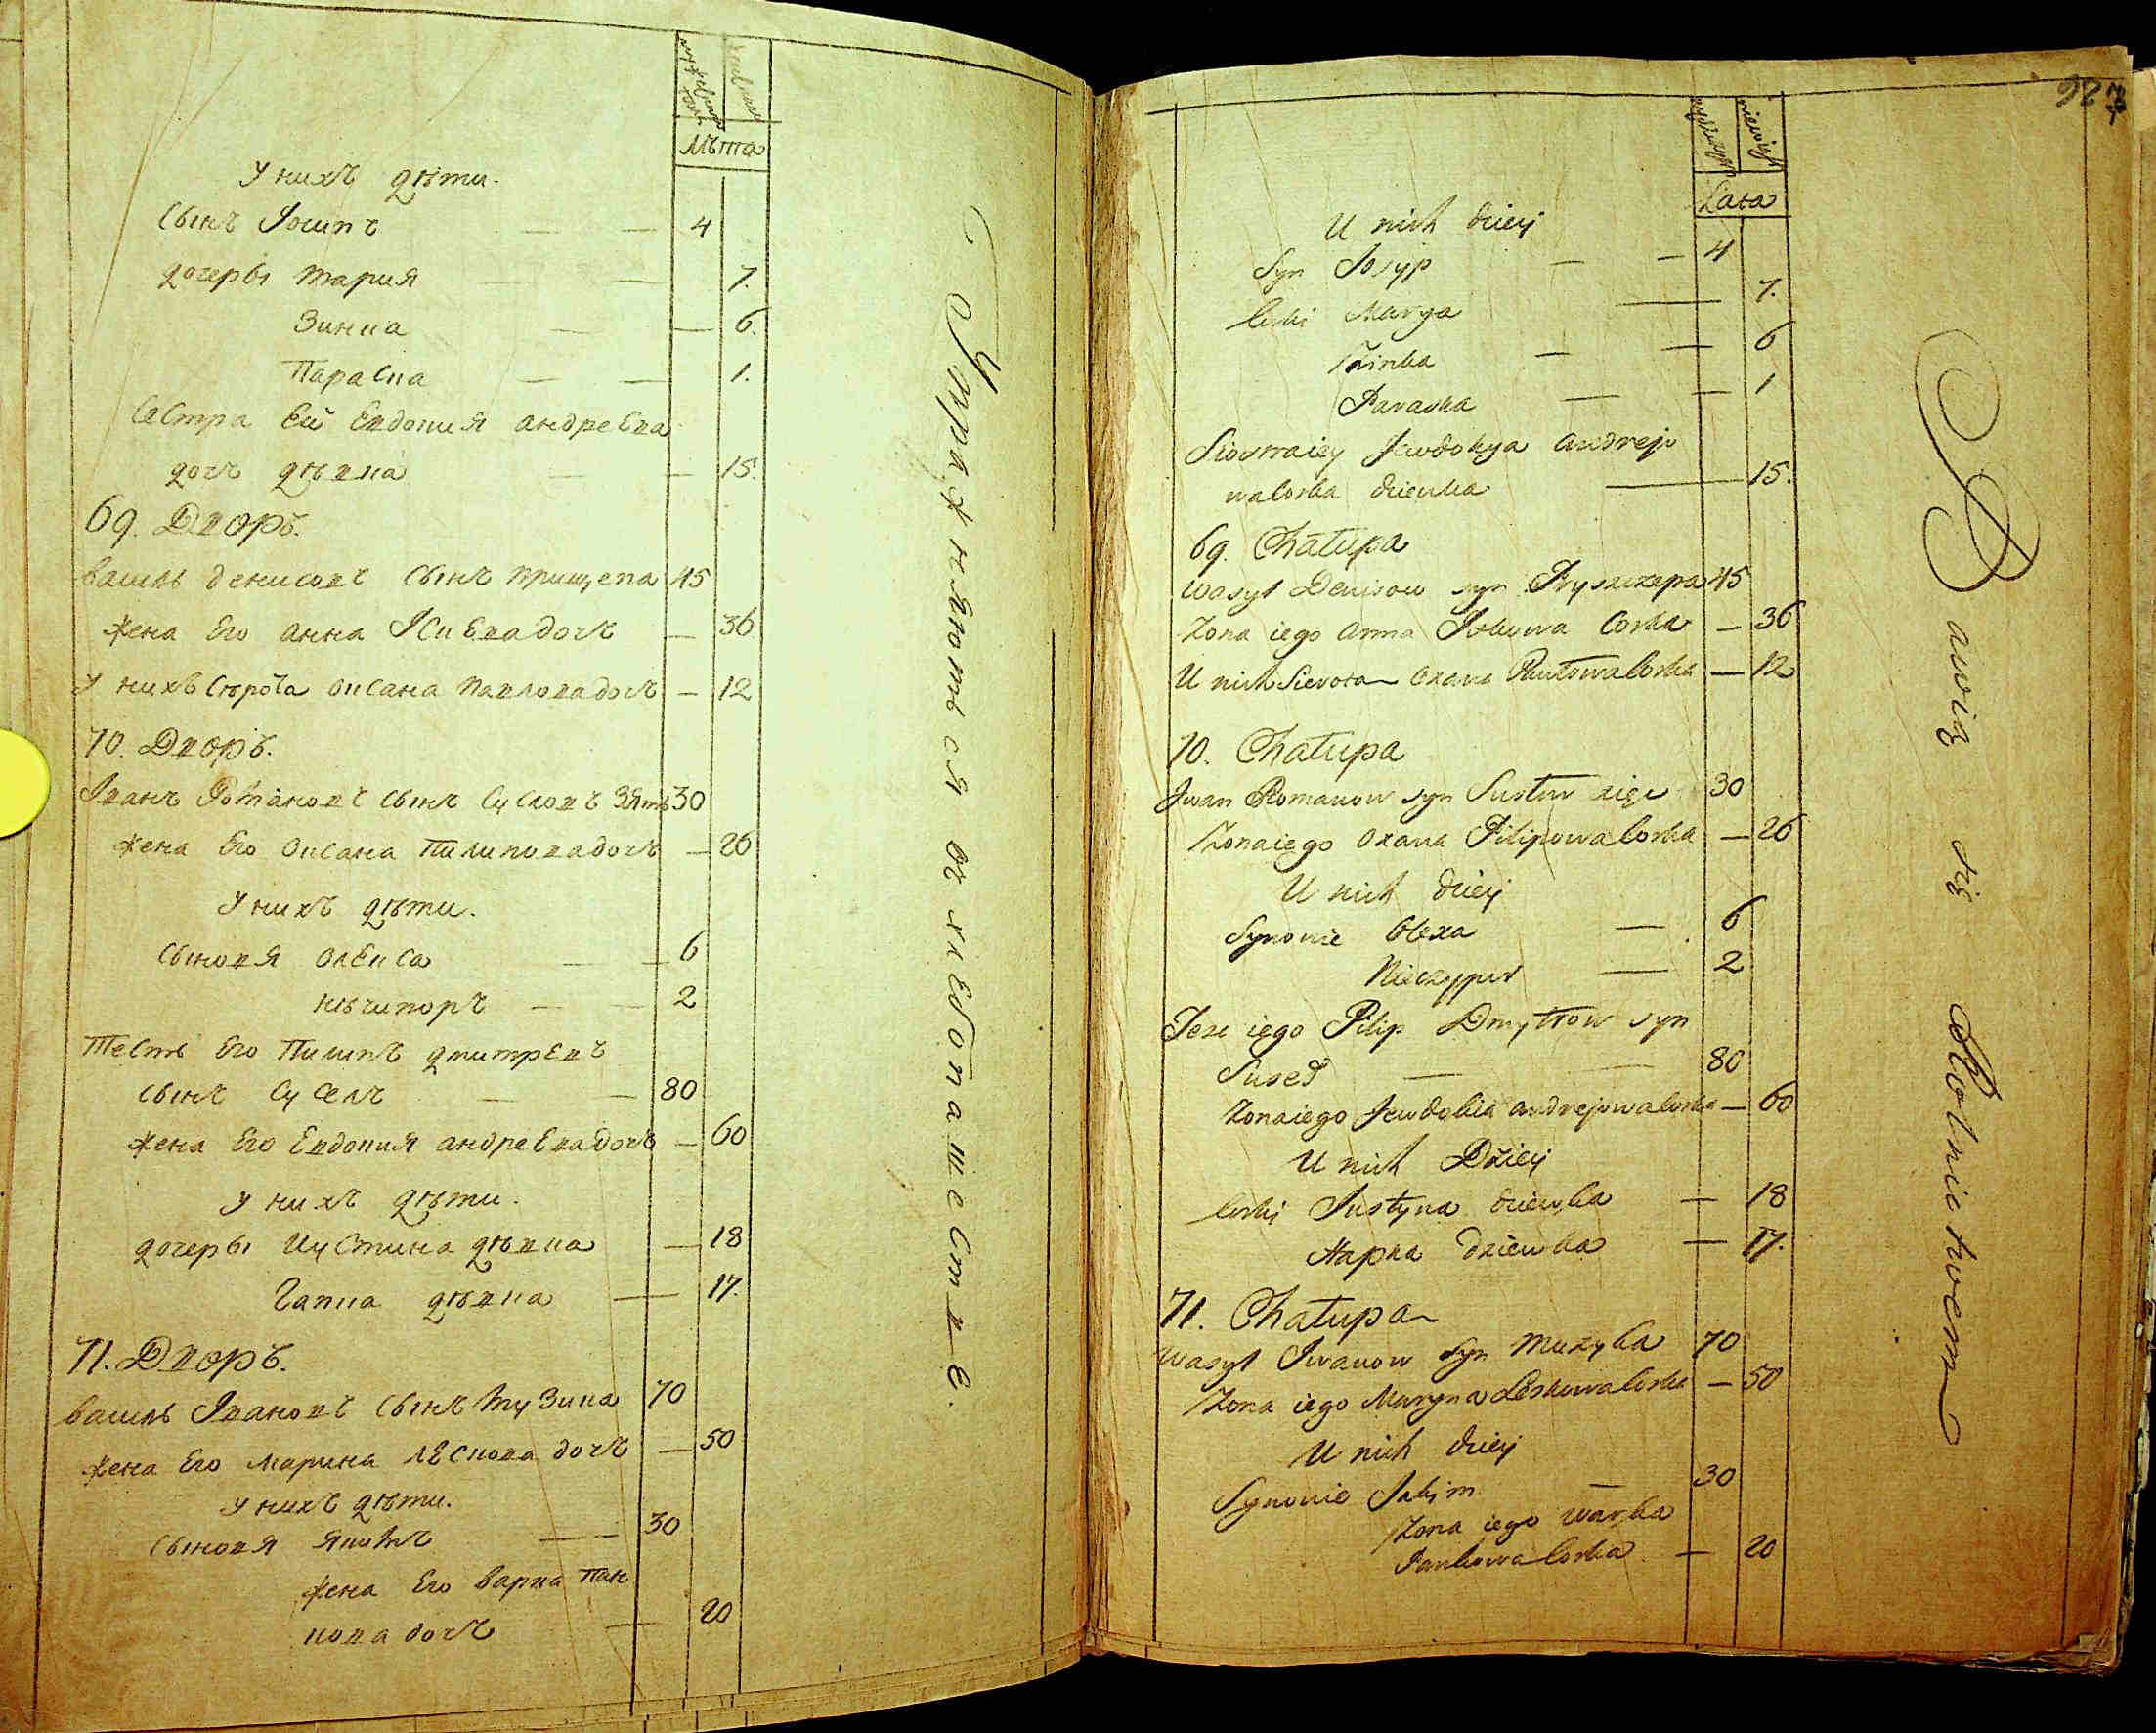 Лѣта
У нихъ дѣти.
Сынъ Iосипъ — — 4
дочеры Мария — — 7.
Зинка — — 6.
Параска — — 1.
Сестра Ей Евдокия андреЕва
дочъ дѣвка — — 15.
69. Дворъ.
василь денисовъ сынъ прищепа 45
жена Его анна Iсквва дочъ — 36
У нихъ сѣрота оксана павлова дочъ — 12
70. Дворъ.
Iванъ Романовъ сынъ Сусловъ зять 30
жена Его Оксана Пилипова дочъ — 26
У нихъ дѣти.
сыновя олекса — — 6
нѣчипоръ — — 2
Тесть Его Пилипъ дмитревъ
сынъ Суселъ — — 80
жена Его Евдокия андреЕва дочъ — 60
У нихъ дѣти.
дочеры Иустина дѣвка — 18
Гапка дѣвка — 17.
71. Дворъ.
василь Iвановъ сынъ Музика 70
жена Его марина лескова дочъ — 50
У нихъ дѣти.
сыновя якимъ — 30
жена Его варка пан
кова дочъ — 20
Упражняются въ хлебопашестве.
Lata
U nich dzieci
Syn Josyp — — 4
Corki Marya — 7.
Zinka — — 6
Paraska — — 1
Siostra iey Jewdokya andrejo
wa Corka dziewka — 15.
69. Chałupa
Wasyl Denisow syn Pryszczepa 45
Zona iego anna Jskowa Corka — 36
U nich Sierota oxana Pawłowa Corka — 12
70. Chałupa
Jwan Romanow syn Susłow zięc 30
Zona iego oxana Pilipowa Corka — 26
U nich dzieci
Synowie Olexa — 6
Nieczypor — 2
Tesc iego Pilip Dmytrow syn
Suseł — — 80
Zona iego Jewdokia andrejowa Corka — 60
U nich Dzieci
Corki Justyna dziewka — 18
Hapka dziewka — 17.
71. Chałupa
Wasyl Jwanow syn Muzyka 70
Zona iego Maryna Leskowa Corka — 50
U nich dzieci
Synowie Jakim — 30
Zona iego Warka
Pankowa Corka — 20
Bawią się Rolnictwem